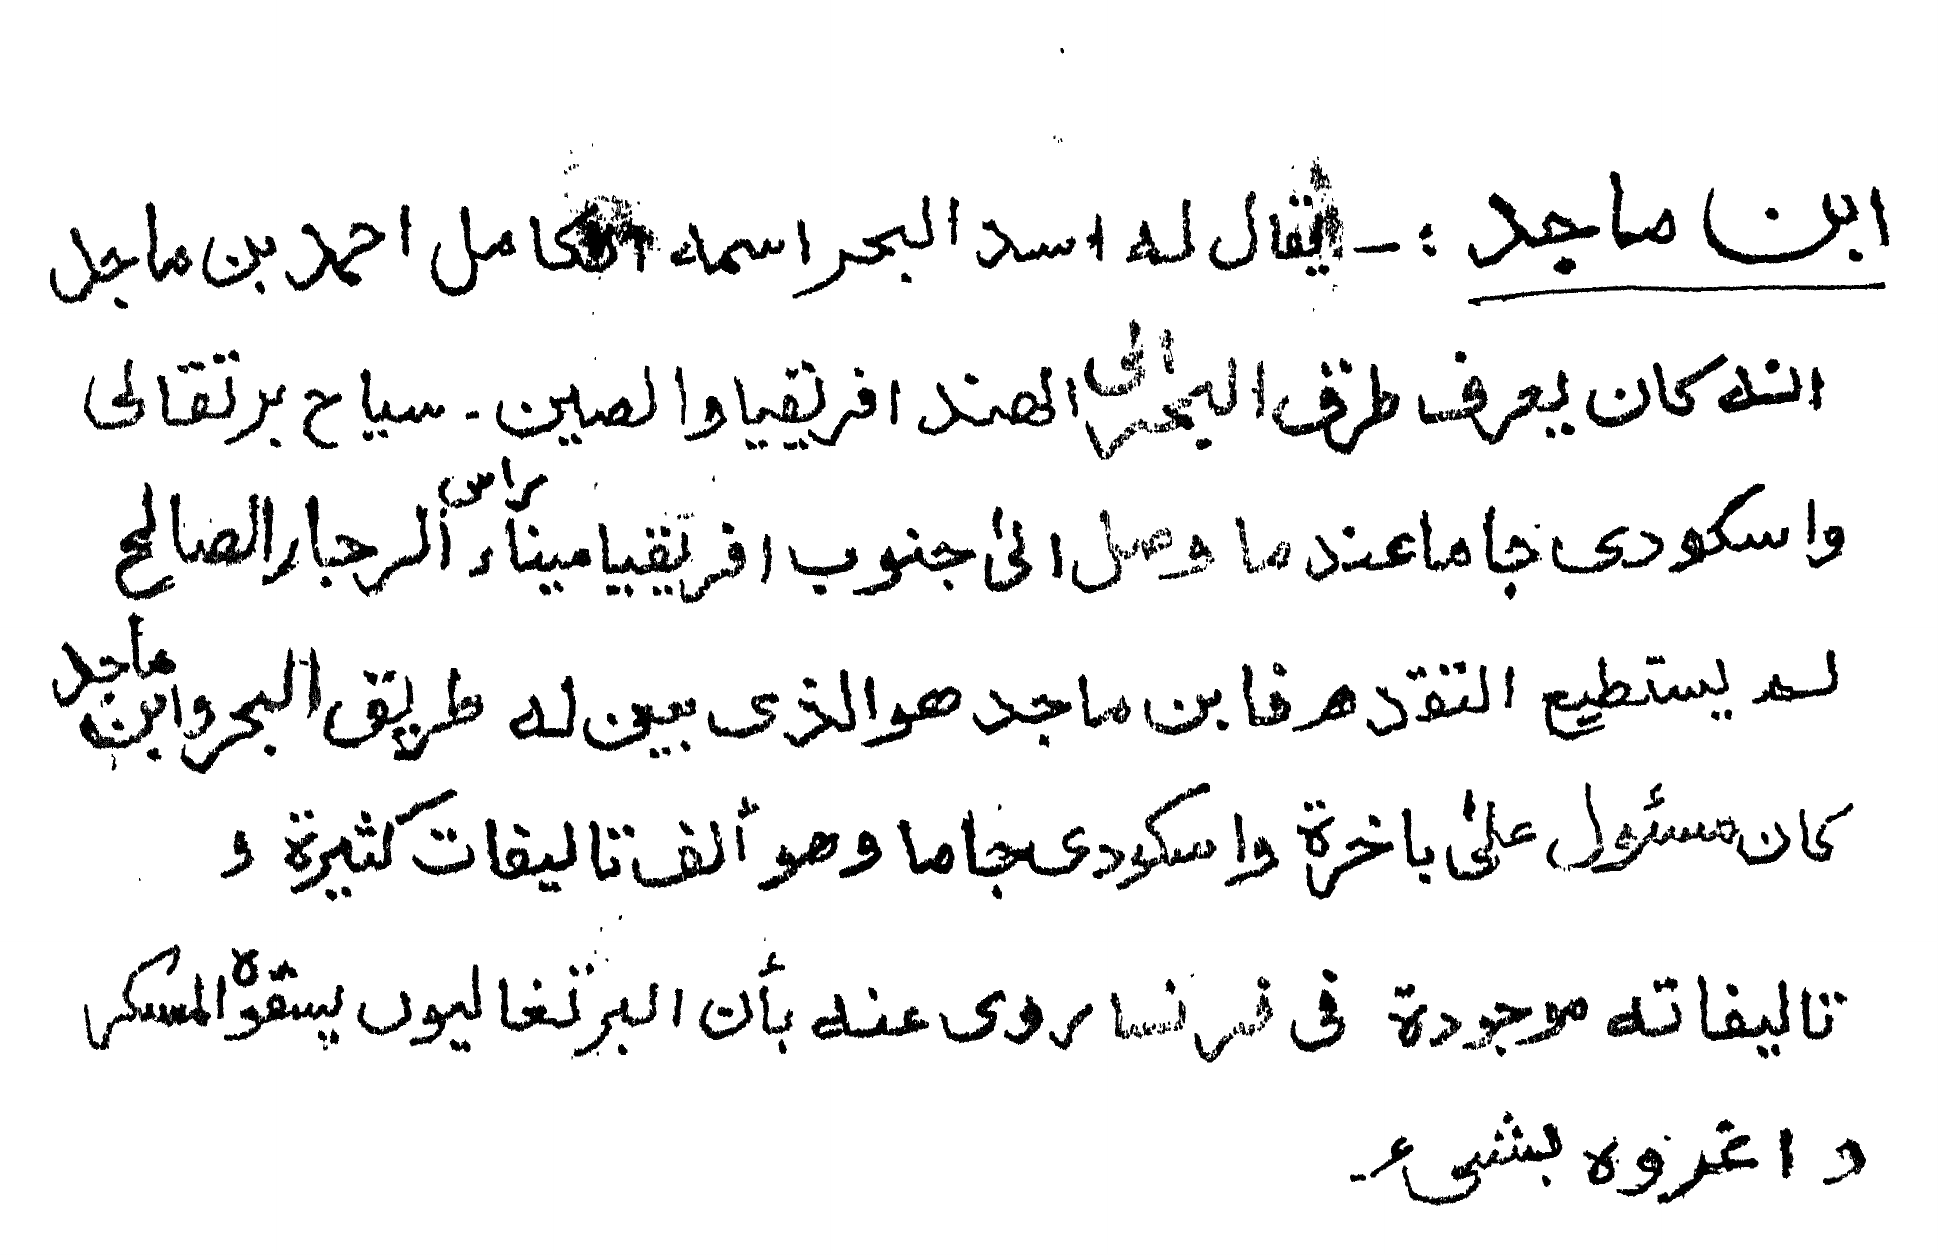 ابن ماجد :- يقال له اسد البحر اسمه الكامل احمد بن ماجد
انه كان يعرف طرق البحر الى الهند افريقيا والصين - سياح برتقالى
واسكودى جاما عندما وصل الىٰ جنوب افريقيا ميناء رأس الرجبار الصالح
لم يستطيع التقدم فابن ماجد هو الذى بين له طريق البحر وابن ماجد
كان مسئول علىٰ باخرة واسكودى جاما وهو ألف تاليفات كثيرة و
تاليفاته موجودة فى فرنسا روى عنه بأن البرتغاليون يسقوه المسكر
و اغروه بشىء -